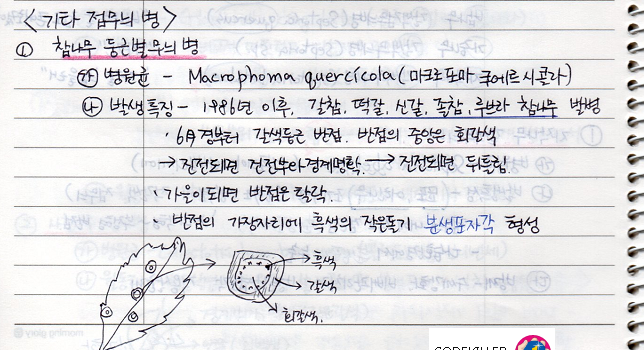 <기타 점무늬 병>
① 참나무 둥근별무늬 병
㉮ 병원균 - Macrophoma quercicola (마크로포마 쿠에르시콜라)
㉯ 발생특징 - 1986년 이후, 갈참, 떡갈, 신갈, 졸참, 루브라 참나무 발병
· 6月경부터 갈색둥근 반점. 반점의 중앙은 회갈색
→ 진전되면 건전부와 경계명확. → 진전되면 뒤틀림.
· 가을이되면 반점은 탈락.
· 반점의 가장자리에 흑색의 작은돌기 분생포자각 형성
흑색
갈색
회갈색.